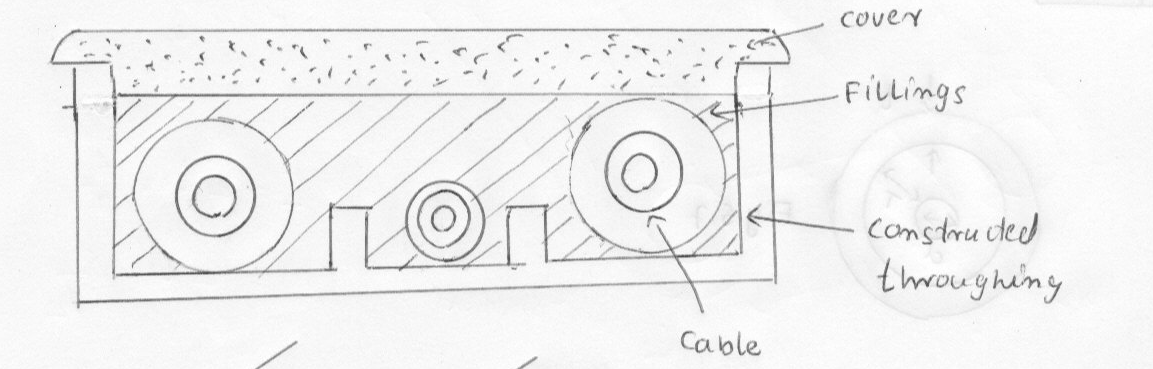 cover
Fillings
constructed
throughing
Cable